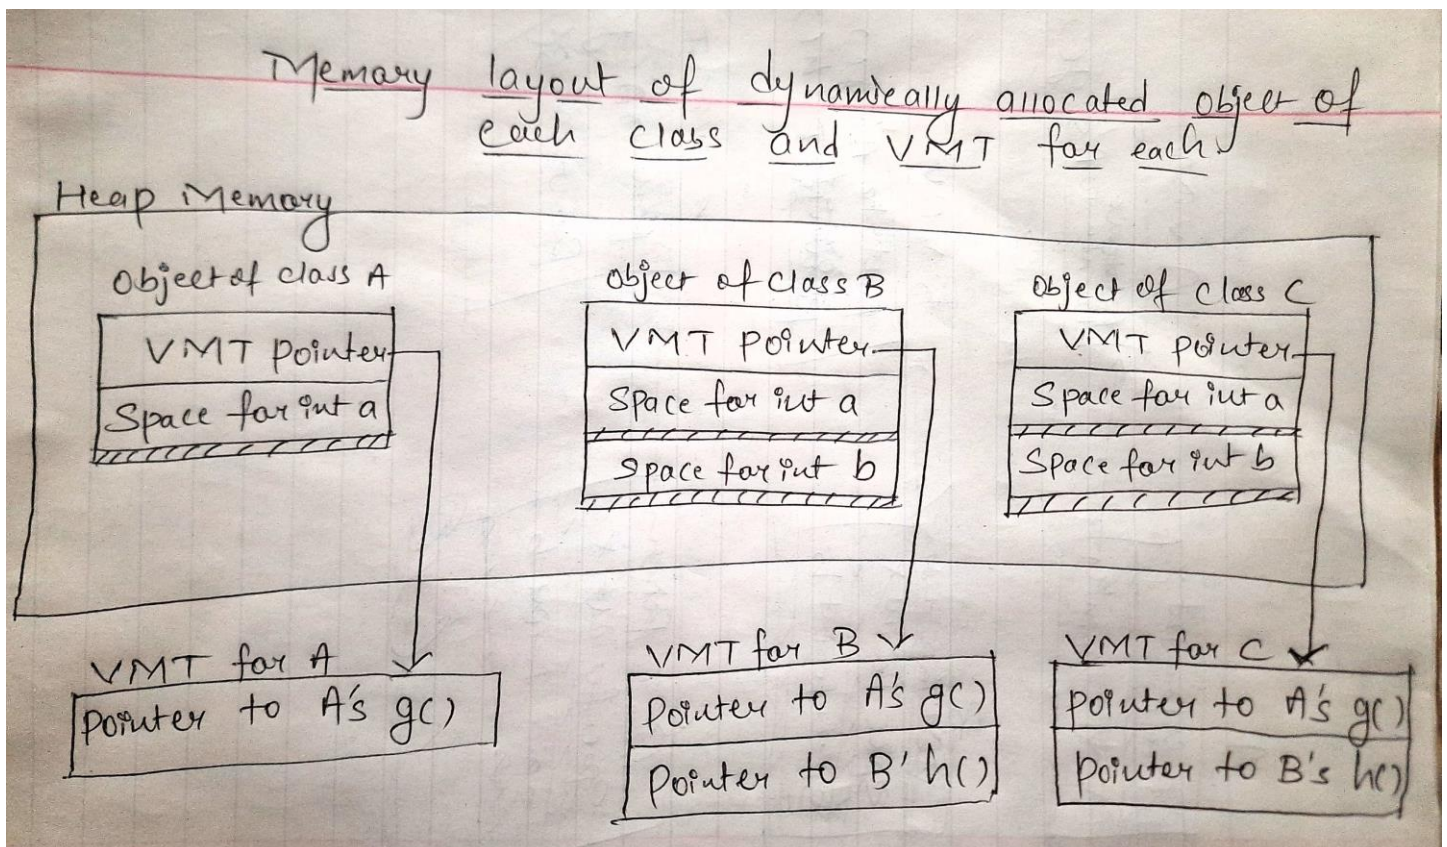 Memory layout of dynamically allocated object of
each class and VMT for each.
Heap Memory
Object of class A
VMT pointer
Space for int a
object of class B
VMT pointer
Space for int a
Space for int b
object of class C
VMT pointer
Space for int a
Space for int b
VMT for A
Pointer to A's g()
VMT for B
Pointer to A's g()
Pointer to B' h()
VMT for C
Pointer to A's g()
Pointer to B's h()